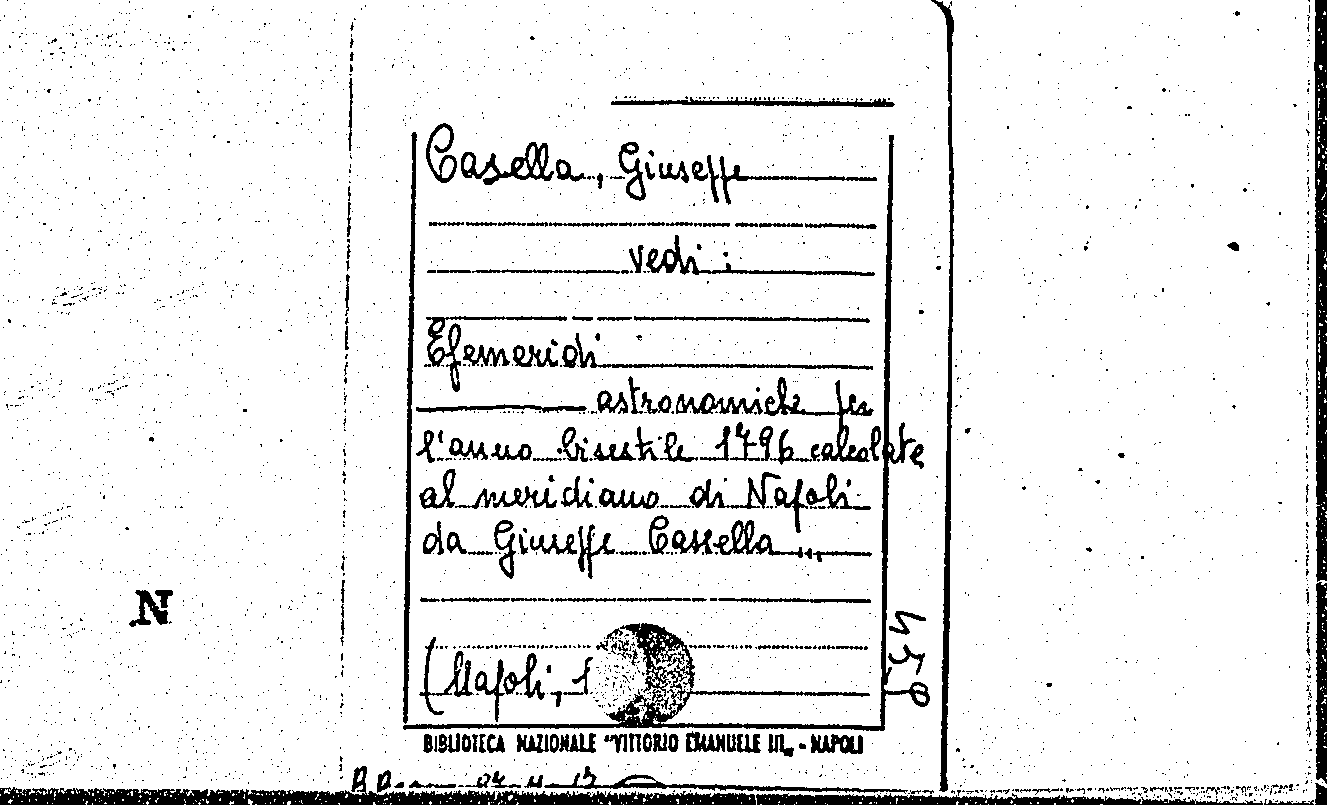 Casella, Giuseppe
vedi :
Efemeridi
astronomiche per
l'anno bisestile 1796 calcolate
al meridiano di Napoli
da Giuseppe Cassella ...
N
(Napoli, 1
BIBLIOTECA NAZIONALE "VITTORIO EMANUELE III" - NAPOLI